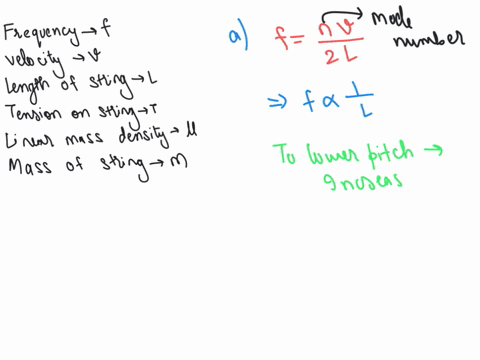 Frequency → f
velocity → v
Length of string → L
Tension on string → T
Linear mass density → μ
Mass of string → m
a) f = nv / 2L → mode number
⇒ f ∝ 1/L
To lower pitch →
Increas